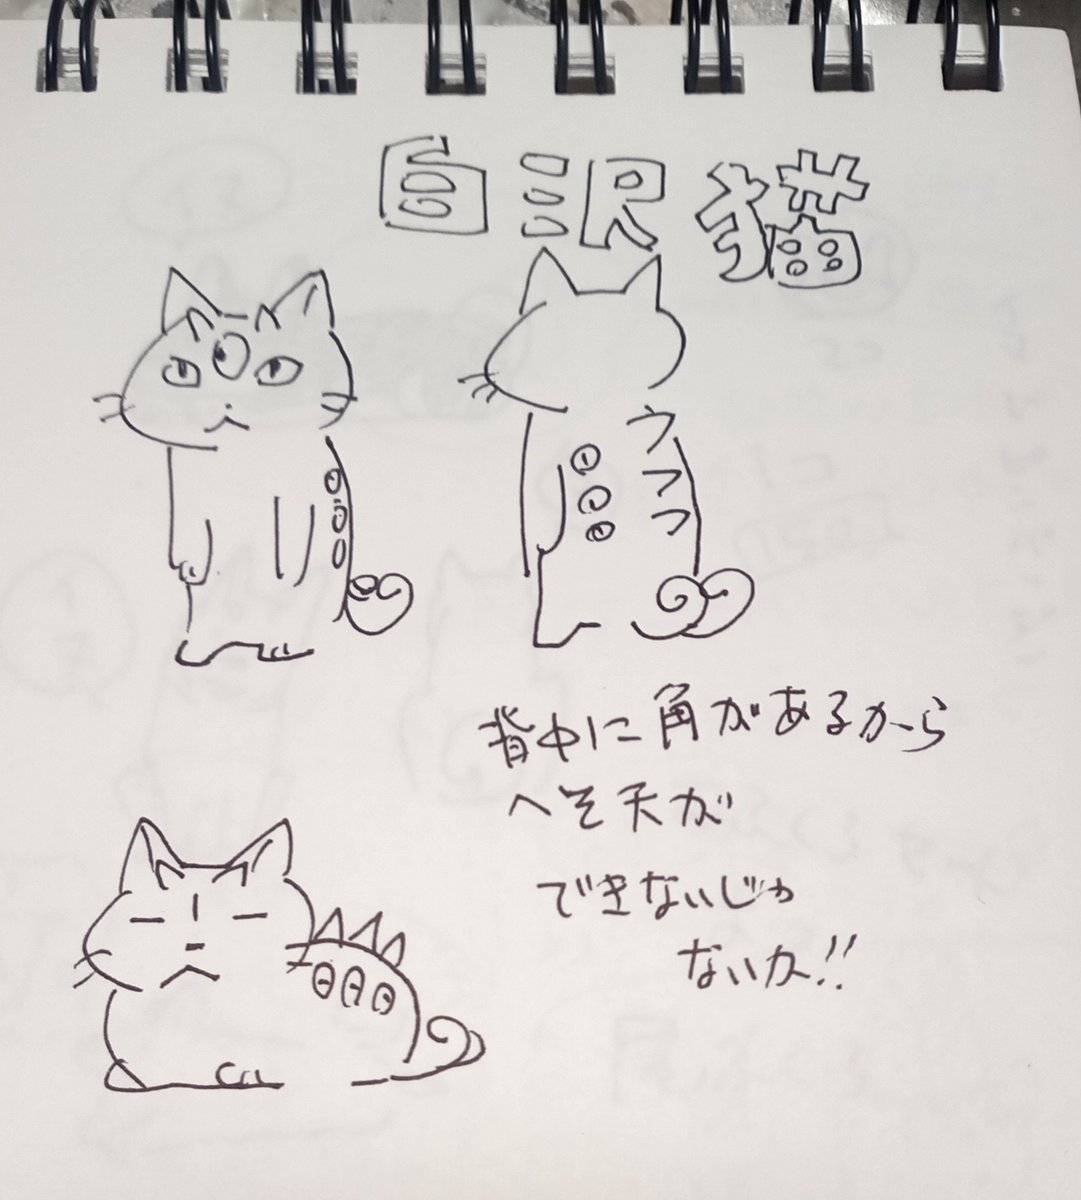 白沢猫
背中に角があるから
へそ天が
できないじゃ
ないか!!